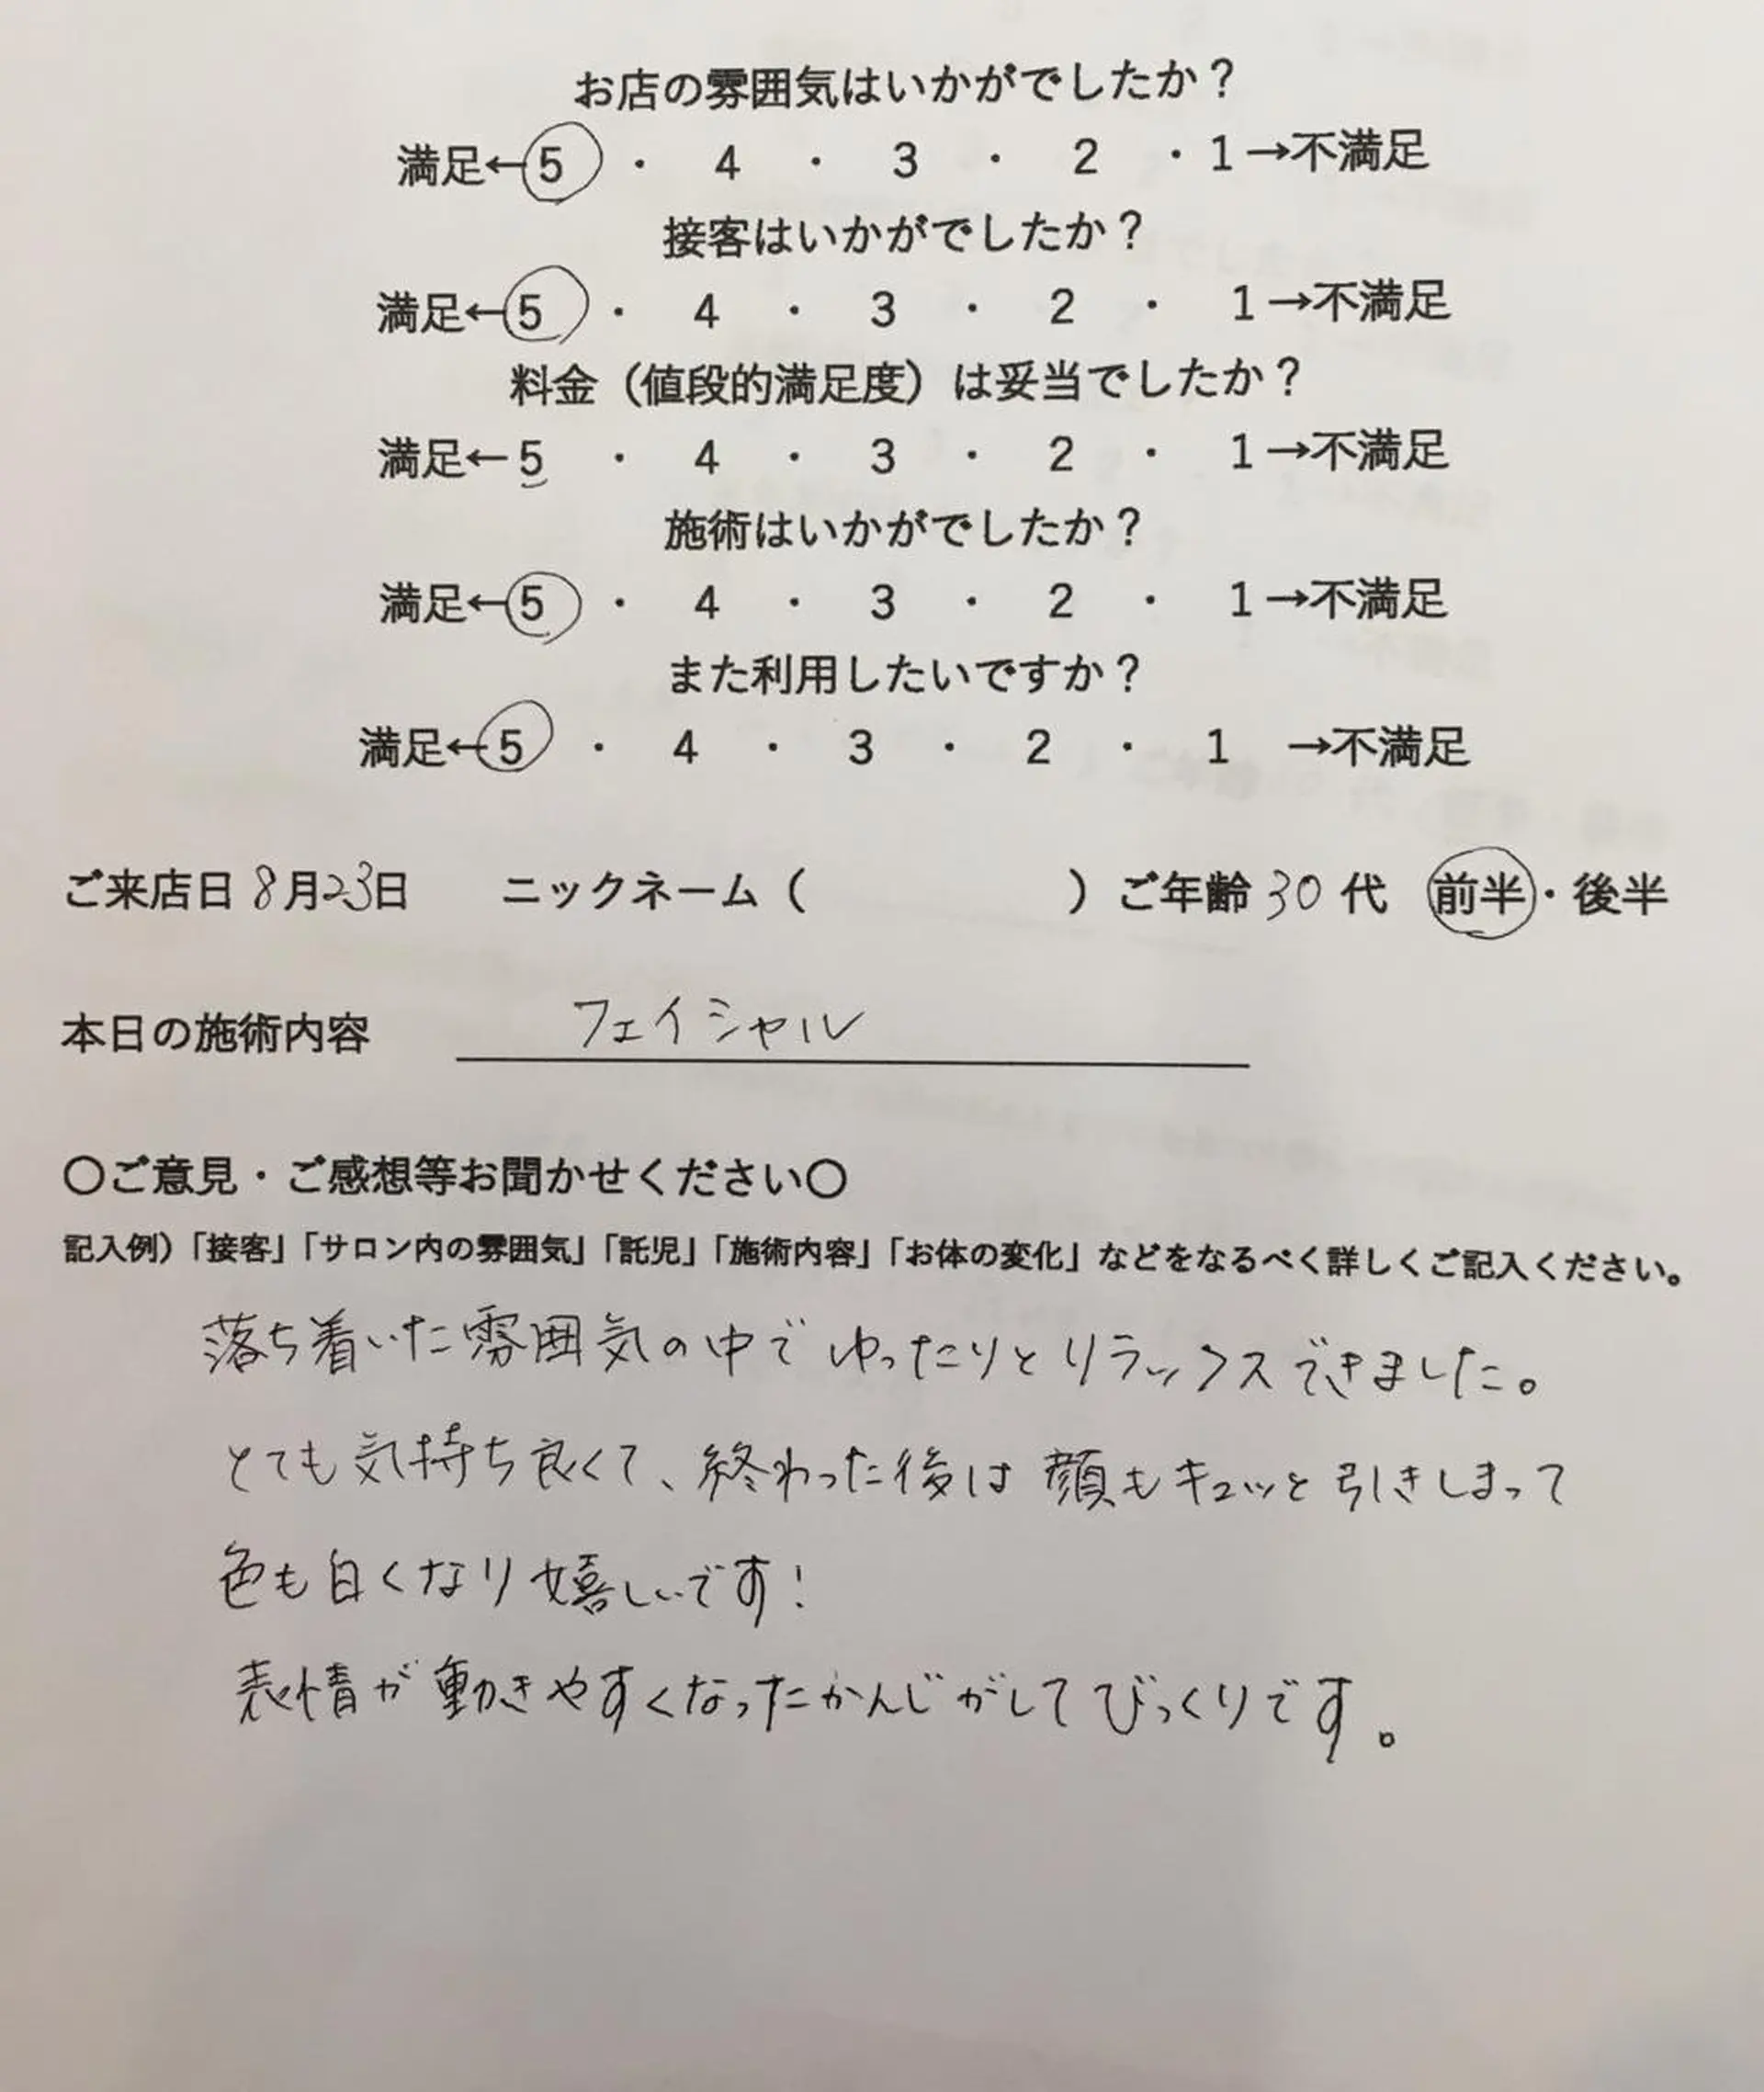 お店の雰囲気はいかがでしたか？
満足←5 ・ 4 ・ 3 ・ 2 ・1→不満足
接客はいかがでしたか？
満足←5 ・ 4 ・ 3 ・ 2 ・ 1→不満足
料金（値段的満足度）は妥当でしたか？
満足←5 ・ 4 ・ 3 ・ 2 ・ 1→不満足
施術はいかがでしたか？
満足←5 ・ 4 ・ 3 ・ 2 ・ 1→不満足
また利用したいですか？
満足←5 ・ 4 ・ 3 ・ 2 ・ 1 →不満足
ご来店日 8月23日 ニックネーム（ ）ご年齢 30 代 前半・後半
本日の施術内容 フェイシャル
〇ご意見・ご感想等お聞かせください〇
記入例）「接客」「サロン内の雰囲気」「託児」「施術内容」「お体の変化」などをなるべく詳しくご記入ください。
落ち着いた雰囲気の中でゆったりとリラックスできました。
とても気持ち良くて、終わった後は顔もキュッと引きしまって
色も白くなり嬉しいです！
表情が動きやすくなったかんじがしてびっくりです。